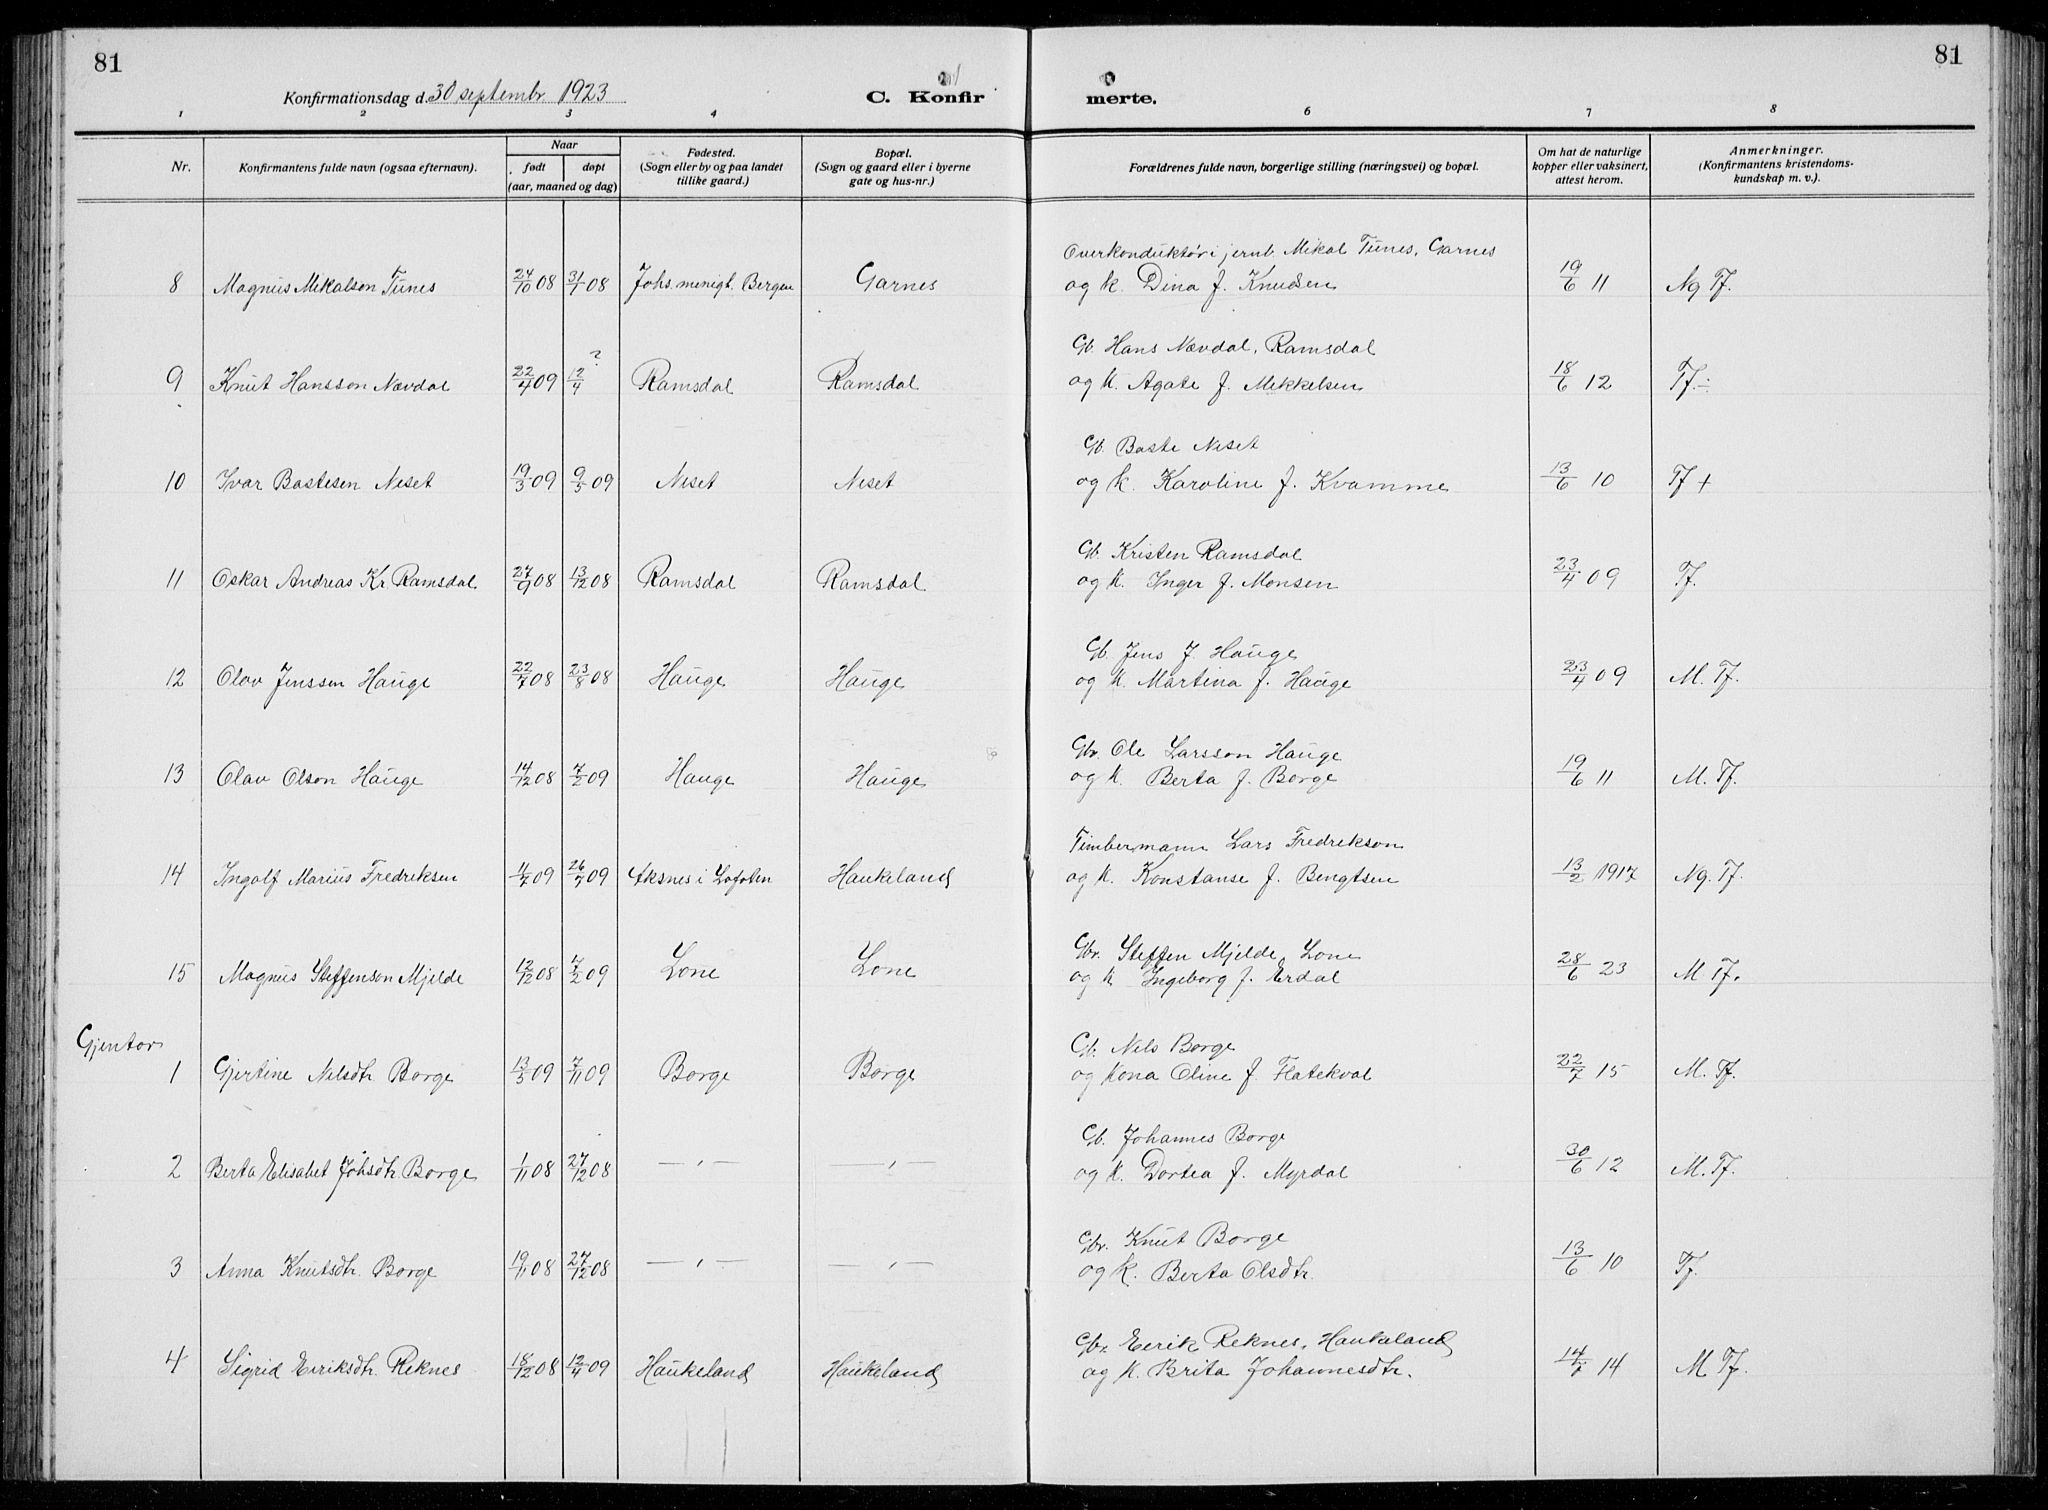 81
81
Konfirmationsdag d. 30 septembr 1923
C. Konfir
merte.
1 2 3 4 6 7 8
Nr.
Konfirmantens fulde navn (ogsaa efternavn).
Naar
født døpt
(aar, maaned og dag)
Fødested.
(Sogn eller by og paa landet
tillike gaard.)
Bopæl.
(Sogn og gaard eller i byerne
gate og hus-nr.)
Forældrenes fulde navn, borgerlige stilling (næringsvei) og bopæl.
Om hat de naturlige
kopper eller vaksinert,
attest herom.
Anmerkninger.
(Konfirmantens kristendoms-
kundskap m. v.).
Overkonduktør i jernb. Mikal Tunes, Garnes
8 Magnus Mikalson Tunes 24/10 08 31/1 08 Johs. menigt. Bergen Garnes og k. Dina f. Knudsen 19/6 11 Ng Tf.
Gb. Hans Nævdal, Ramsdal
9 Knut Hansson Nævdal 22/4 09 12/4 ? Ramsdal Ramsdal og k. Agate f. Mikkelsen 18/6 12 Tf. ÷
Gb. Baste Neset
10 Ivar Bastesen Neset 19/3 09 9/5 09 Neset Neset og k. Karoline f. Kvamme 13/6 10 Tf +
Gb. Kristen Ramsdal
11 Oskar Andreas Kr. Ramsdal 27/9 08 13/12 08 Ramsdal Ramsdal og k. Inger f. Monsen 23/4 09 Tf.
Gb. Jens J. Hauge
12 Olav Jenssen Hauge 22/7 08 23/8 08 Hauge Hauge og k. Martina f. Hauge 23/4 09 M. Tf.
Gbr. Ole Larsson Hauge
13 Olav Olson Hauge 14/12 08 7/2 09 Hauge Hauge og k. Berta f. Borge 19/6 11 M. Tf.
Timbermann Lars Fredrikson
14 Ingolf Marius Fredriksen 11/7 09 26/7 09 i Lofoten Haukeland og k. Konstanse f. Bengtsen 13/2 1917 Ng. Tf.
Gbr. Steffen Mjelde, Lone
15 Magnus Steffenson Mjelde 12/12 08 7/2 09 Lone Lone og k Ingeborg f. Erdal 28/6 23 M Tf.
Gjentor
Gb. Nels Borge
1 Gjertine Nilsdtr. Borge 13/5 09 7/11 09 Borge Borge og kona Oline f. Flatekval 22/7 15 M. Tf.
Gb. Johannes Borge
2 Berta Elisabet Johsdtr. Borge 1/11 08 27/12 08 — , — — , — og k. Dortea f. Myrdal 30/6 12 M. Tf.
Gbr. Knut Borge
3 Anna Knutsdtr. Borge 19/11 08 27/12 08 — , — — , — og k. Berta Olsdtr. 13/6 10 Tf.
Gbr. Eerik Reknes, Haukeland
4 Sigrid Eiriksdtr. Reknes 18/12 08 12/4 09 Haukeland Haukeland og k. Brita Johannesdtr. 14/7 14 M Tf.